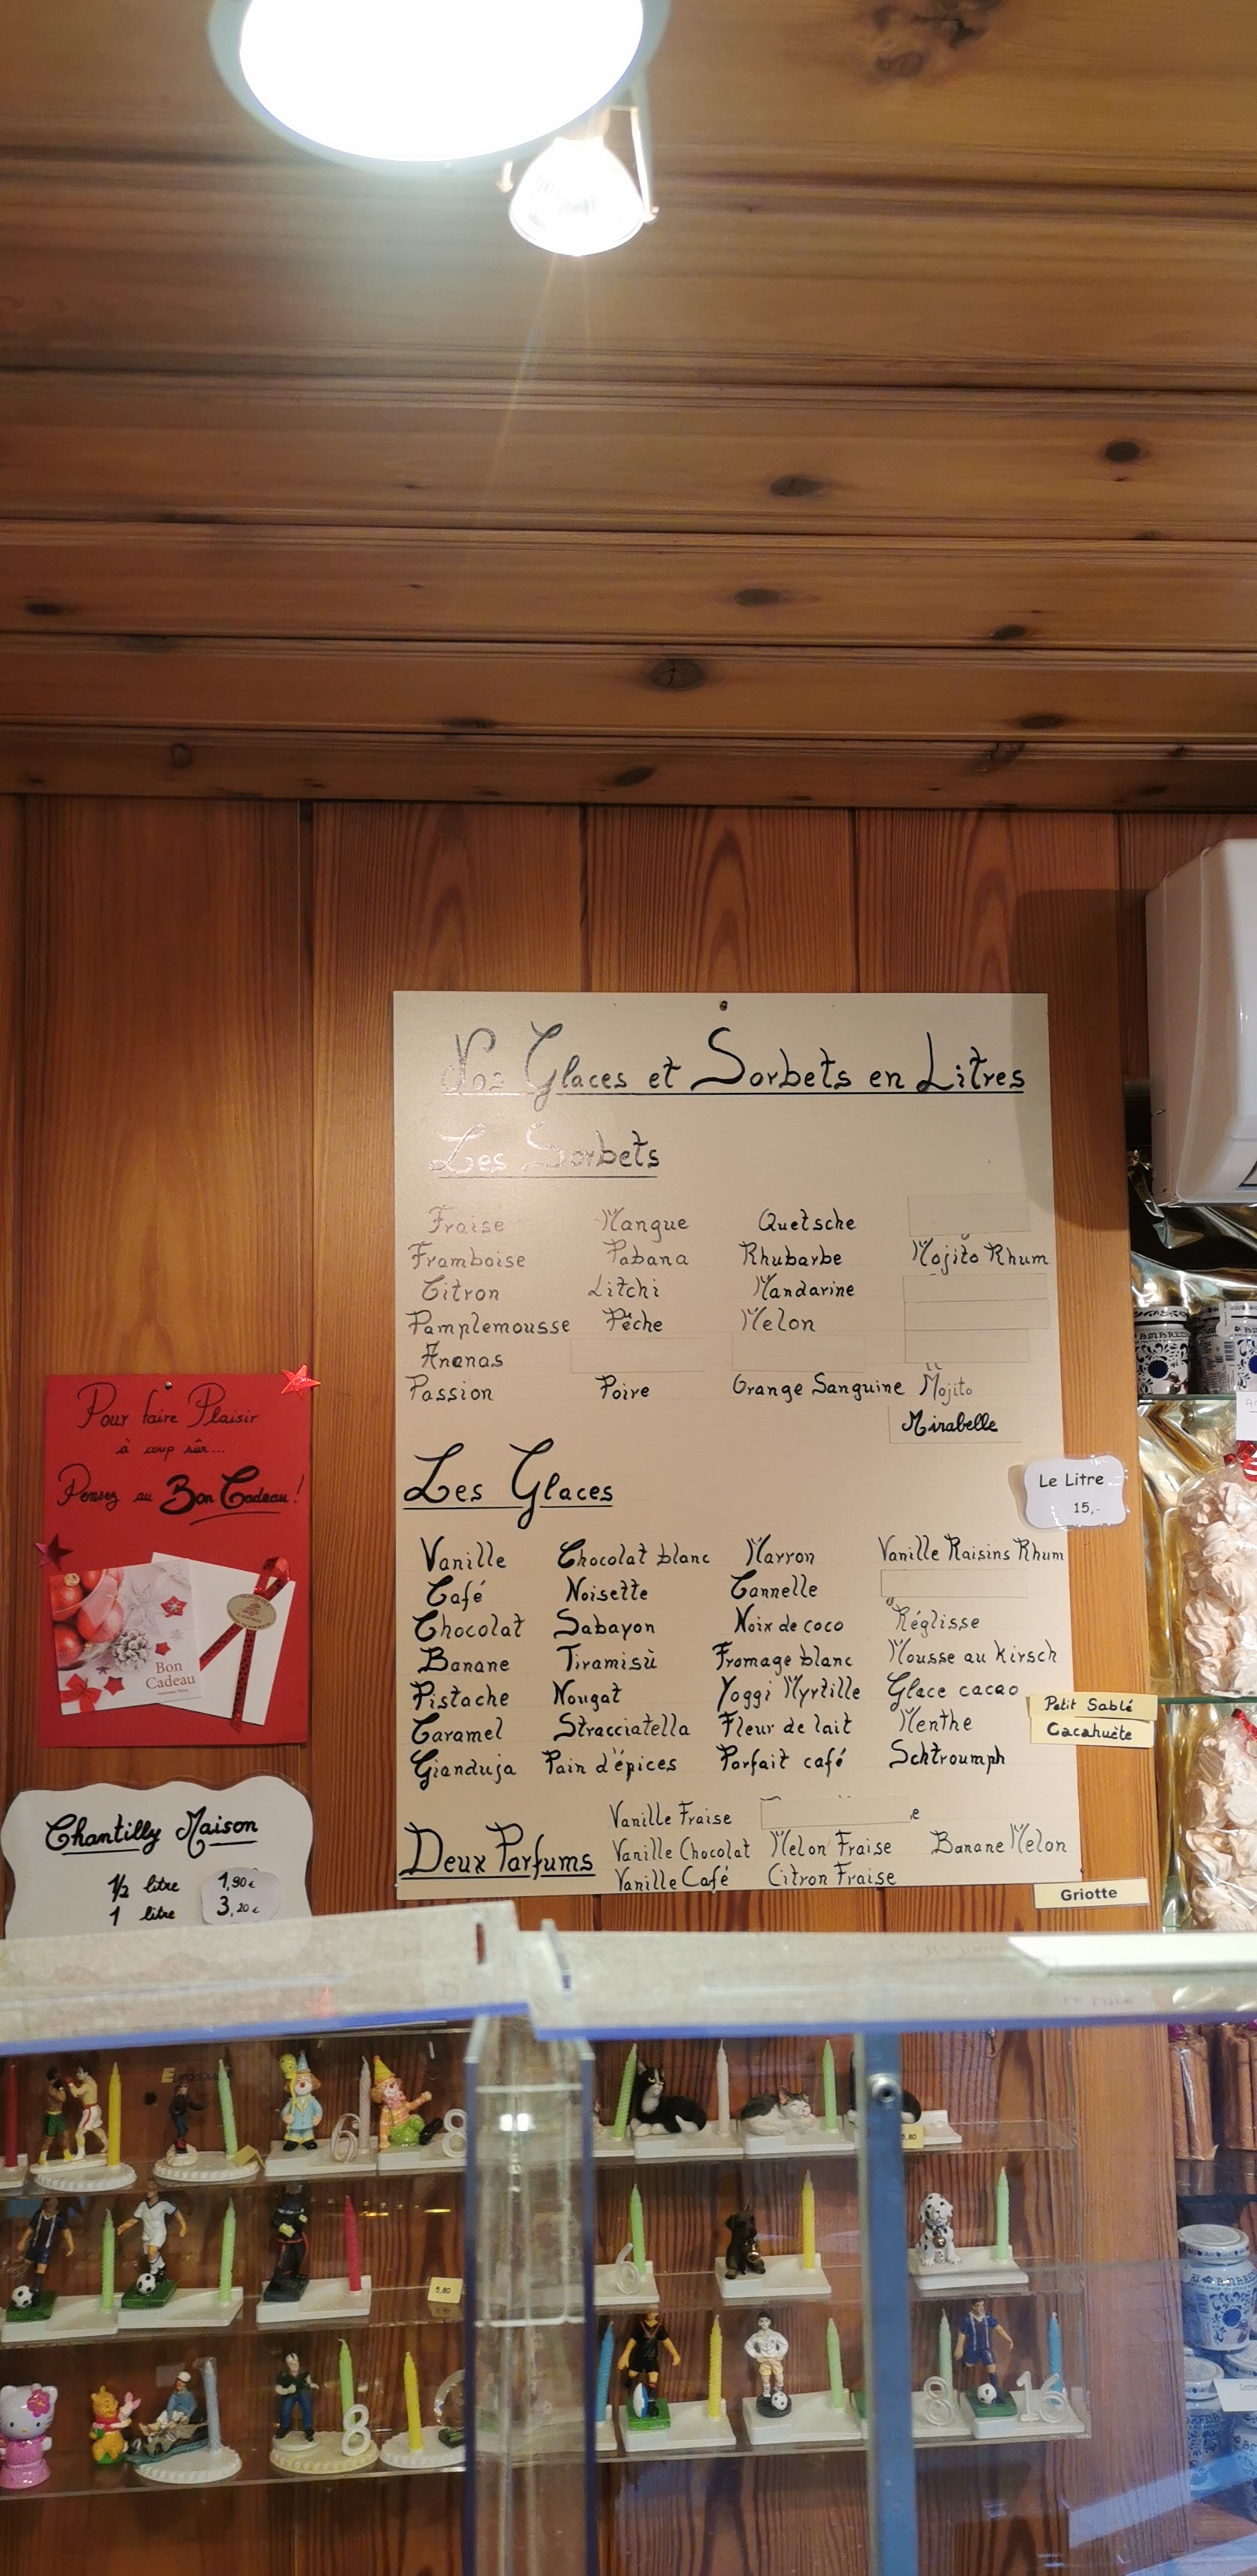 Nos Glaces et Sorbets en Litres
Les Sorbets
Fraise Mangue Quetsche
Framboise Pabana Rhubarbe Mojito Rhum
Citron Litchi Mandarine
Pamplemousse Pêche Melon
Ananas
Passion Poire Orange Sanguine Mojito
Mirabelle
Les Glaces
Le Litre
15,-
Vanille Chocolat blanc Marron Vanille Raisins Rhum
Café Noisette Cannelle
Chocolat Sabayon Noix de coco Réglisse
Banane Tiramisù Fromage blanc Mousse au Kirsch
Pistache Nougat Yoggi Myrtille Glace cacao
Petit Sablé
Caramel Stracciatella Fleur de lait Menthe
Cacahuète
Gianduja Pain d'épices Parfait café Schtroumph
Deux Parfums
Vanille Fraise e
Vanille Chocolat Melon Fraise Banane Melon
Vanille Café Citron Fraise
Griotte
Pour faire Plaisir
à coup sûr...
Pensez au Bon Cadeau!
Bon
Cadeau
Chantilly Maison
1/2 litre 1,90€
1 litre 3,20€
6
8
5,80
5,80
6
8
8
16